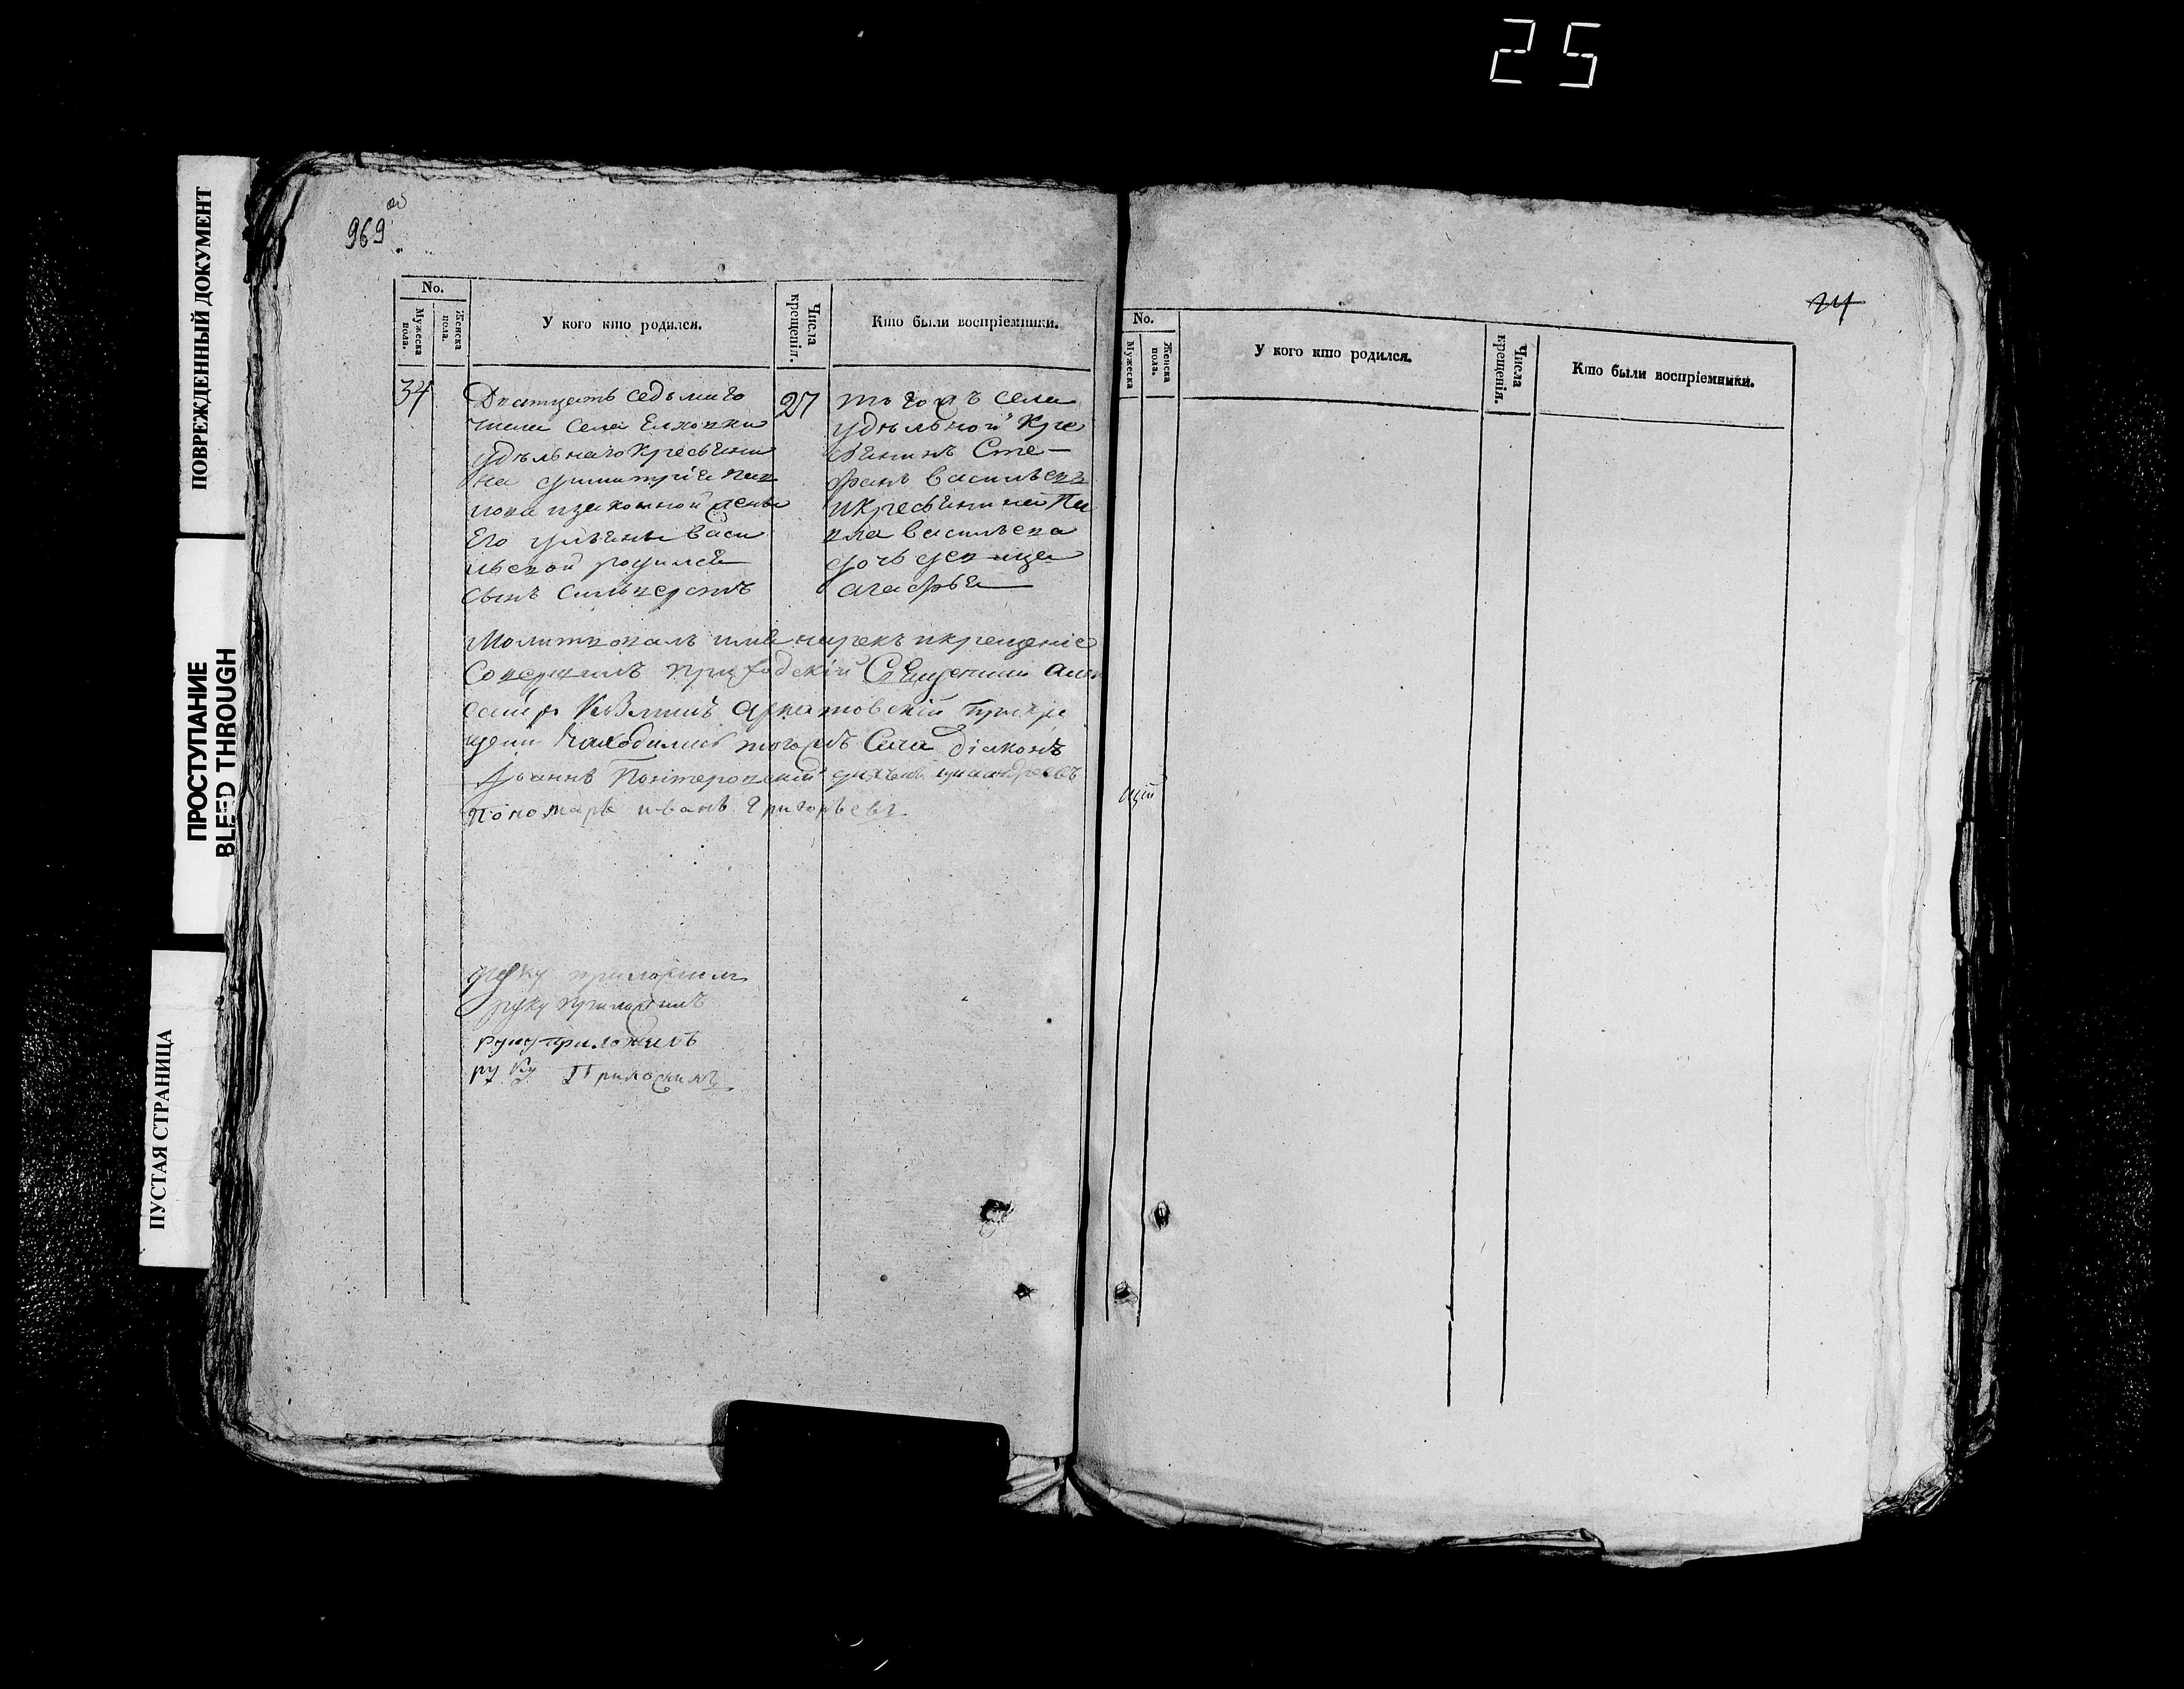 25
ПОВРЕЖДЕННЫЙ ДОКУМЕНТ
ПРОСТУПАНИЕ
BLEED THROUGH
ПУСТАЯ СТРАНИЦА
об
969
No.
Мужеска пола.
Женска пола.
У кого кто родился.
Числа крещенія.
Кто были воспріемники.
34
Дватцать седьмаго
числа села Елховки
удѣльнаго Кресьяни
на Димитріа
законной жены
Его ульяны Васи
льевой родился
сынъ Сильверстъ
27
того жъ села
удѣльной Кре
сьянинъ Сте-
фанъ Васильевъ
и кресьянина Па
вла Васильева
дочь девица
агафья
Молитвовалъ имя нарекъ и крещеніе
Совершилъ приходскій Священникъ Алек
сандръ при кре
щеніи находились тогожъ Села діаконъ
Іоаннъ
Пономарь иванъ Григорьевъ
руку приложилъ
руку приложилъ
руку приложилъ
руку Приложилъ
24
No.
Мужеска
Женска пола.
У кого кто родился.
Числа крещенія.
Кто были воспріемники.